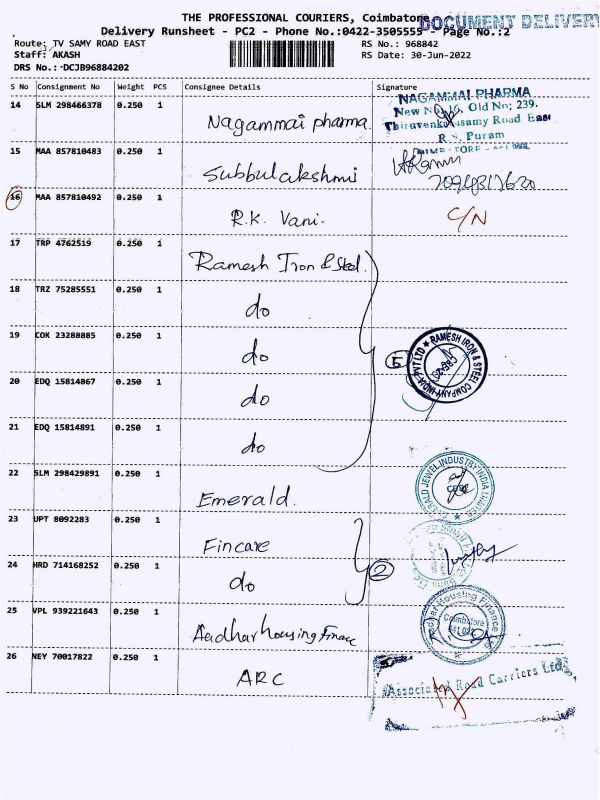 THE PROFESSIONAL COURIERS, Coimbatore
DOCUMENT DELIVERY
Delivery Runsheet - PC2 - Phone No.:0422-3505555 - Page No.:2
Route: TV SAMY ROAD EAST RS No.: 968842
Staff: AKASH RS Date: 30-Jun-2022
DRS No.:-DCJB96884202
S No Consignment No Weight PCS Consignee Details Signature
14 SLM 298466378 0.250 1 Nagammai pharma
NAGAMMAI PHARMA
New No; 16, Old No; 239.
Thiruvenkatasamy Road East
R.S. Puram
15 MAA 857810483 0.250 1 Subbulakshmi
16 MAA 857810492 0.250 1 R.K. Vani. C/N
17 TRP 4762519 0.250 1 Ramesh Iron & Steel.
18 TRZ 75285551 0.250 1 do
19 COK 23288885 0.250 1 do
5
RAMESH IRON & STEEL COMPANY-INDIA-PVT LTD
20 EDQ 15814867 0.250 1 do
21 EDQ 15814891 0.250 1 do
22 SLM 298429891 0.250 1 Emerald.
EMERALD JEWEL INDUSTRY INDIA LIMITED
23 UPT 8092283 0.250 1 Fincare
24 HRD 714168252 0.250 1 do
2
25 VPL 939221643 0.250 1 Aadhar housing Finance
Aadhar Housing Finance
Coimbatore
26 NEY 70017822 0.250 1 ARC
Associated Road Carriers Ltd